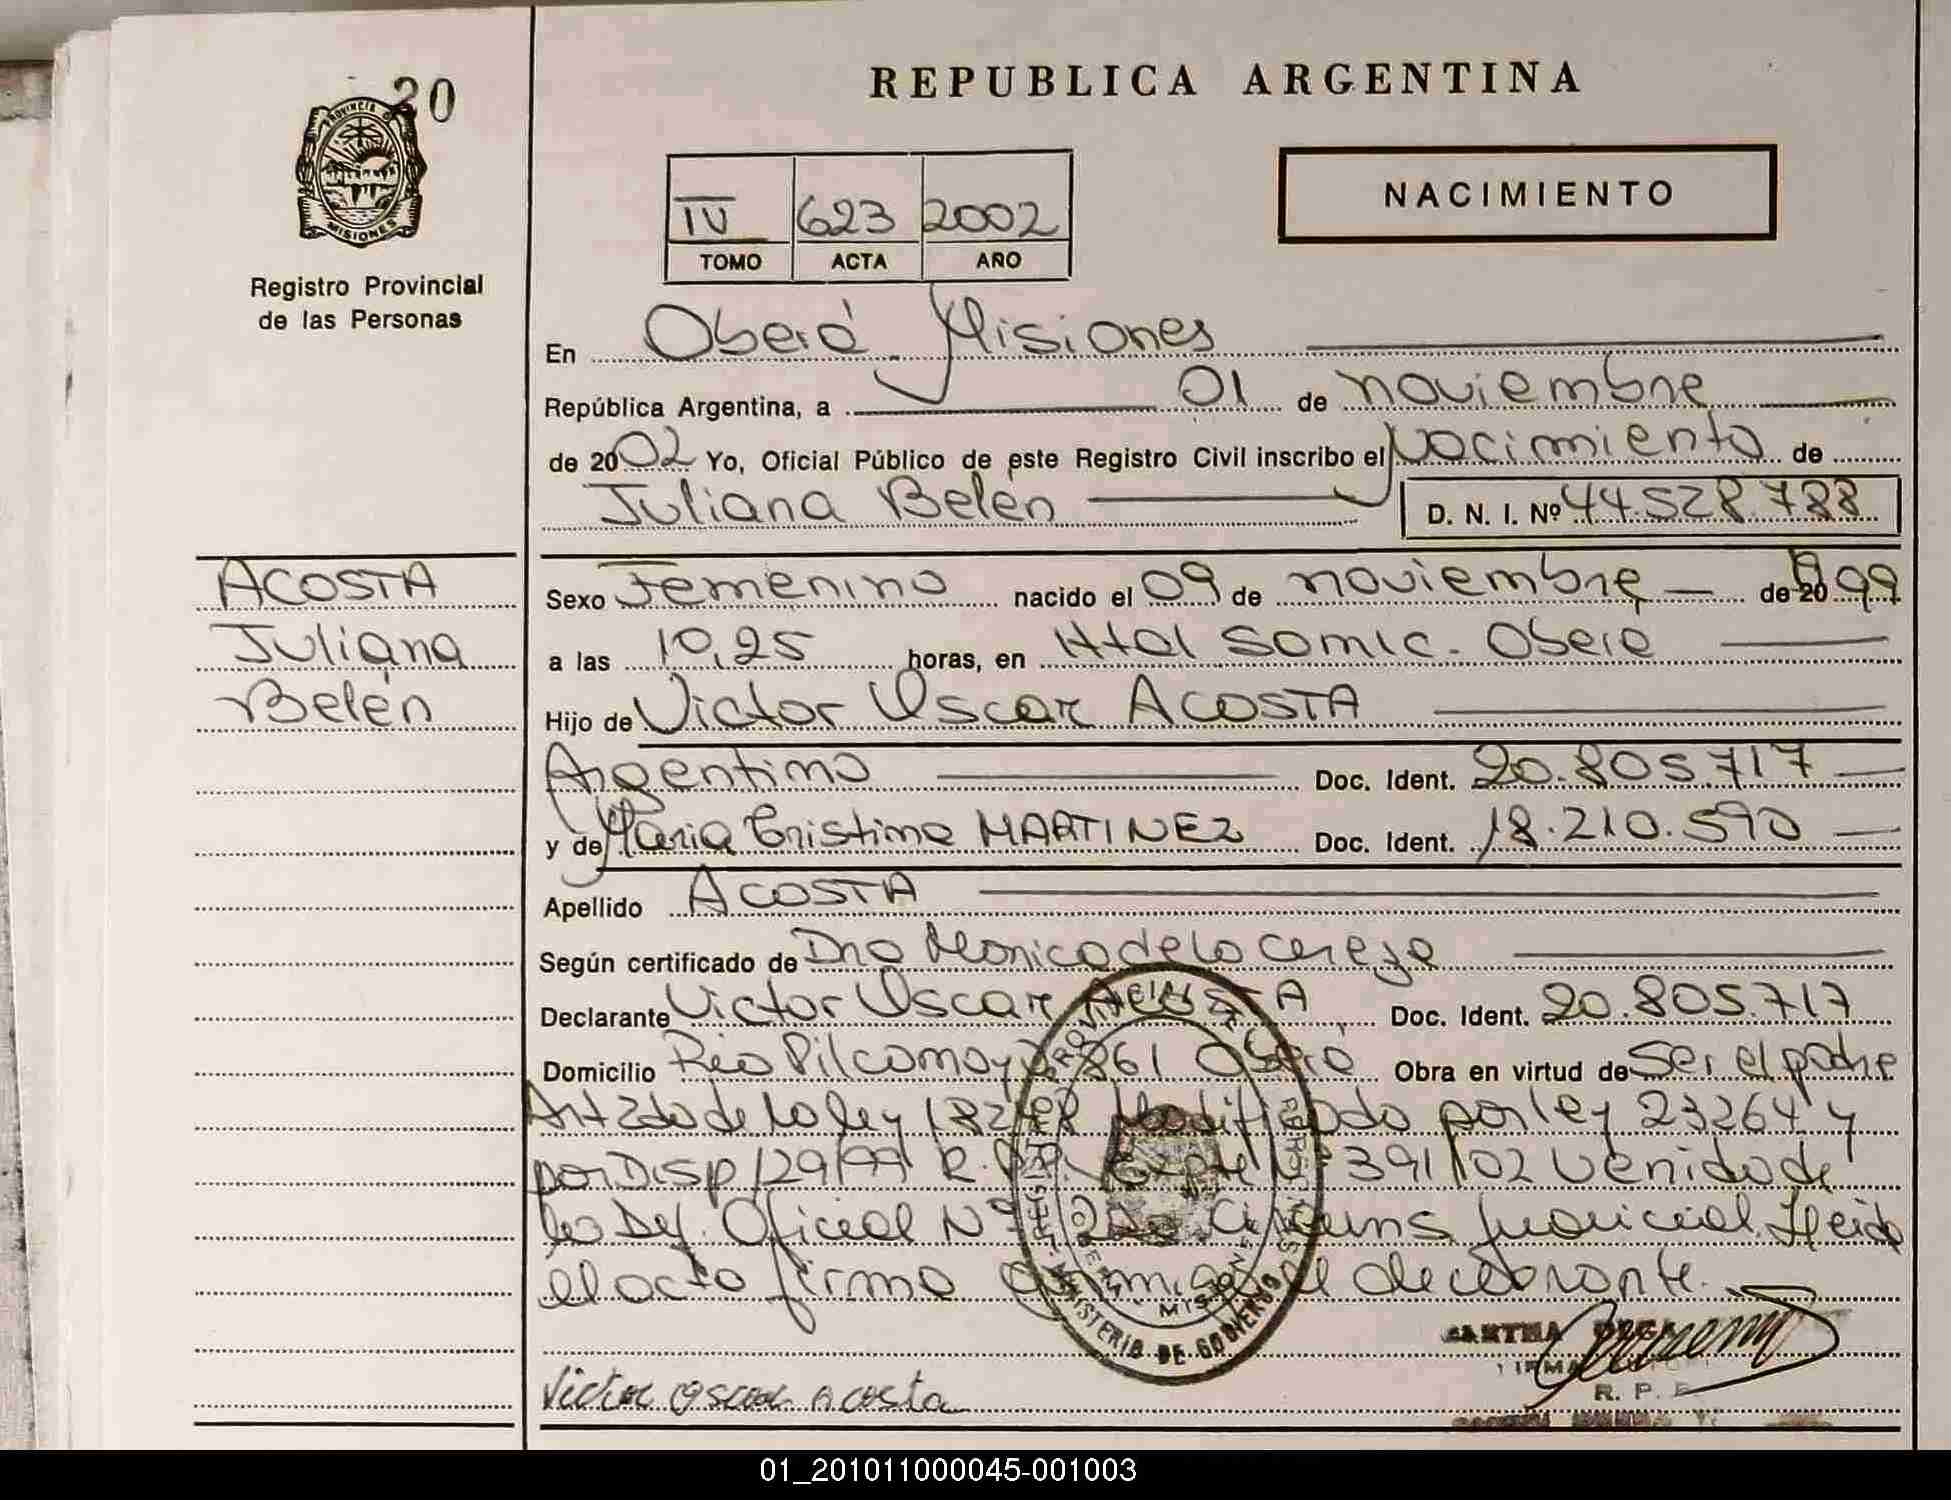 20
REPUBLICA ARGENTINA
PROVINCIA DE MISIONES
Registro Provincial
de las Personas
IV 623 2002
TOMO ACTA AÑO
NACIMIENTO
En Oberá Misiones
República Argentina, a 01 de noviembre
de 2002 Yo, Oficial Público de este Registro Civil inscribo el Nacimiento de
Juliana Belén D. N. I. Nº 44.528.788
ACOSTA
Juliana
Belén
Sexo Femenino nacido el 09 de noviembre de 1999
a las 10,25 horas, en Htal Samic. Oberá
Hijo de Victor Oscar ACOSTA
Argentino Doc. Ident. 20.805.717
y de Maria Cristina MARTINEZ Doc. Ident. 18.210.590
Apellido ACOSTA
Según certificado de Dra Monica de la
Declarante Victor Oscar ACOSTA Doc. Ident. 20.805.717
Domicilio Rio Pilcomayo 861 Oberá Obra en virtud de Ser el padre
Art 2do de la ley 18248 Modificado por ley 23264 y
por Disp 129/99 R.P.P. Expte Nº 391/02 venido de
la Def. Oficial Nº 2da Circuns Judicial. Leida
el acta firma conmigo el declarante.
MISIONES
MINISTERIO DE GOBIERNO
R. P.
Victor Oscar Acosta
01_201011000045-001003